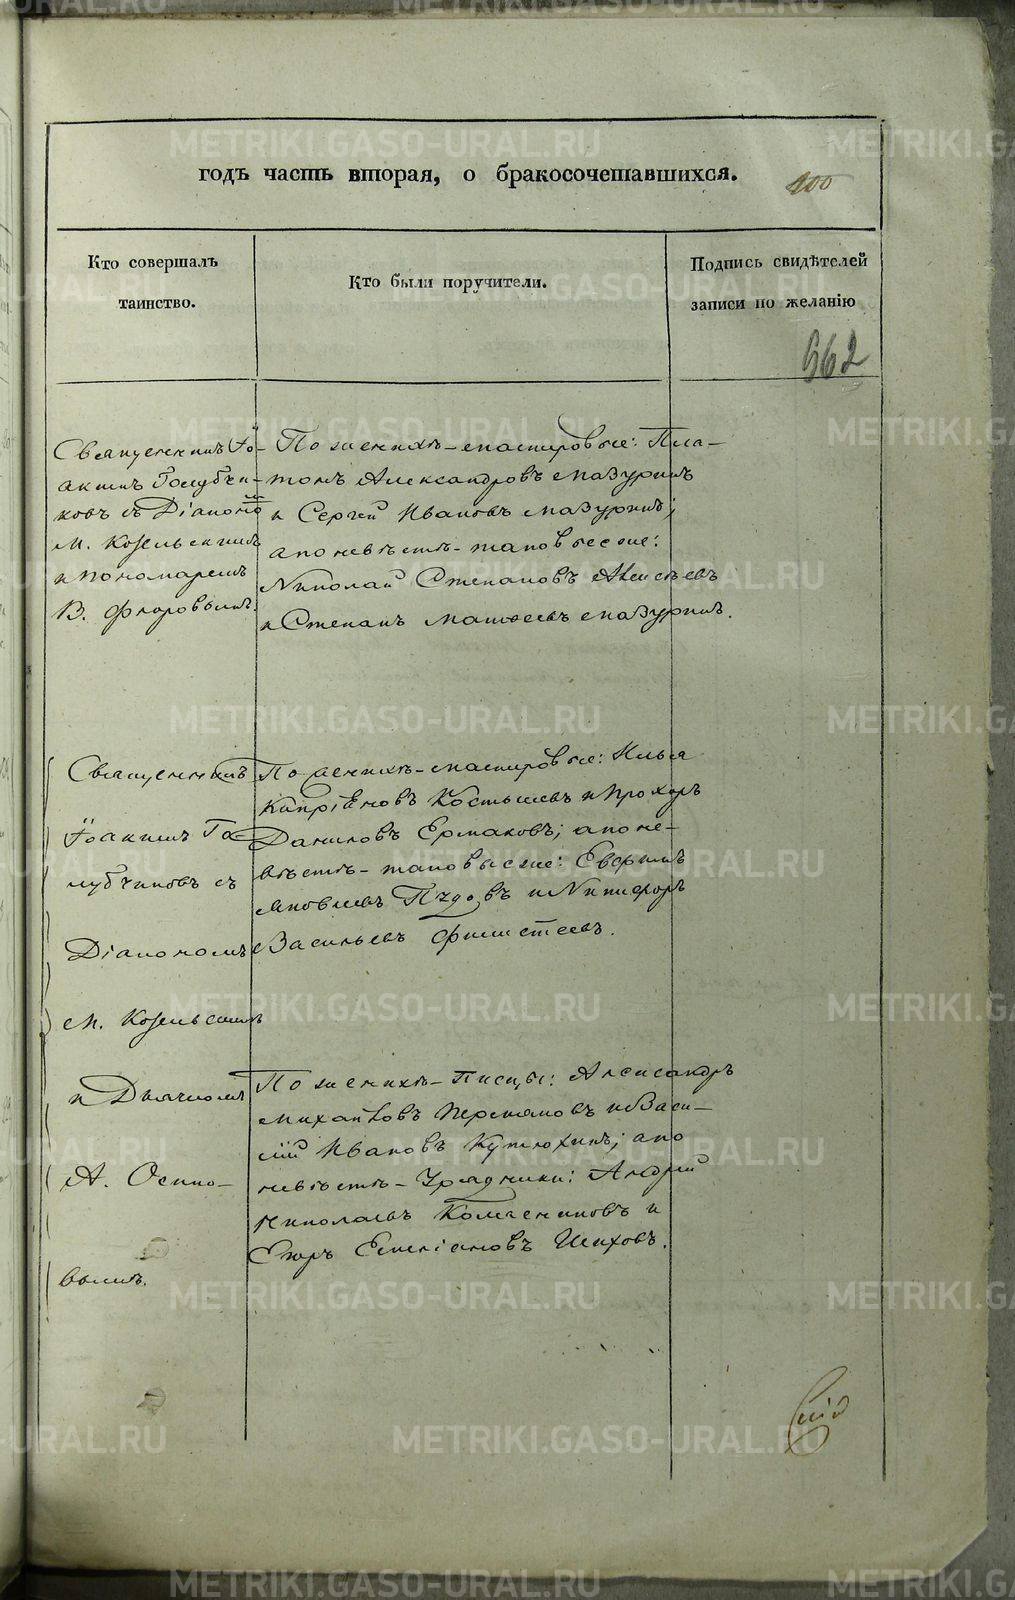 годъ часть вторая, о бракосочетавшихся.
100
Кто совершалъ
таинство.
Кто были поручители.
Подпись свидѣтелей
записи по желанію
662
Священникъ Іо-
акимъ Голубчи-
ковъ съ Діакономъ
М. Козельскимъ
и пономаремъ
В. Флоровымъ.
По женихѣ - мастеровые: Пла-
тонъ Александровъ Мазуринъ
и Сергей Ивановъ Мазуринъ;
а по невѣстѣ - таковые же:
Николай Степановъ
и Степанъ Матвеевъ Мазуринъ.
Священникъ
Іоакимъ Го-
лубчиковъ съ
Діакономъ
М. Козельскимъ
и Дьячкомъ
А. Осипо-
вымъ.
По женихѣ - мастеровые: Илья
Кипріяновъ Костылевъ и Прохоръ
Даниловъ Ермаковъ; а по не-
вѣстѣ - таковые же:
Яковлевъ и Никифоръ
Васильевъ
По женихѣ - Писцы: Александръ
Михайловъ Пермяковъ и Васи-
лій Ивановъ Кутюхинъ; а по
невѣстѣ - Урядники: Андрей
Николаевъ Колясниковъ и
Егоръ Емельяновъ Шиховъ.
METRIKI.GASO-URAL.RU